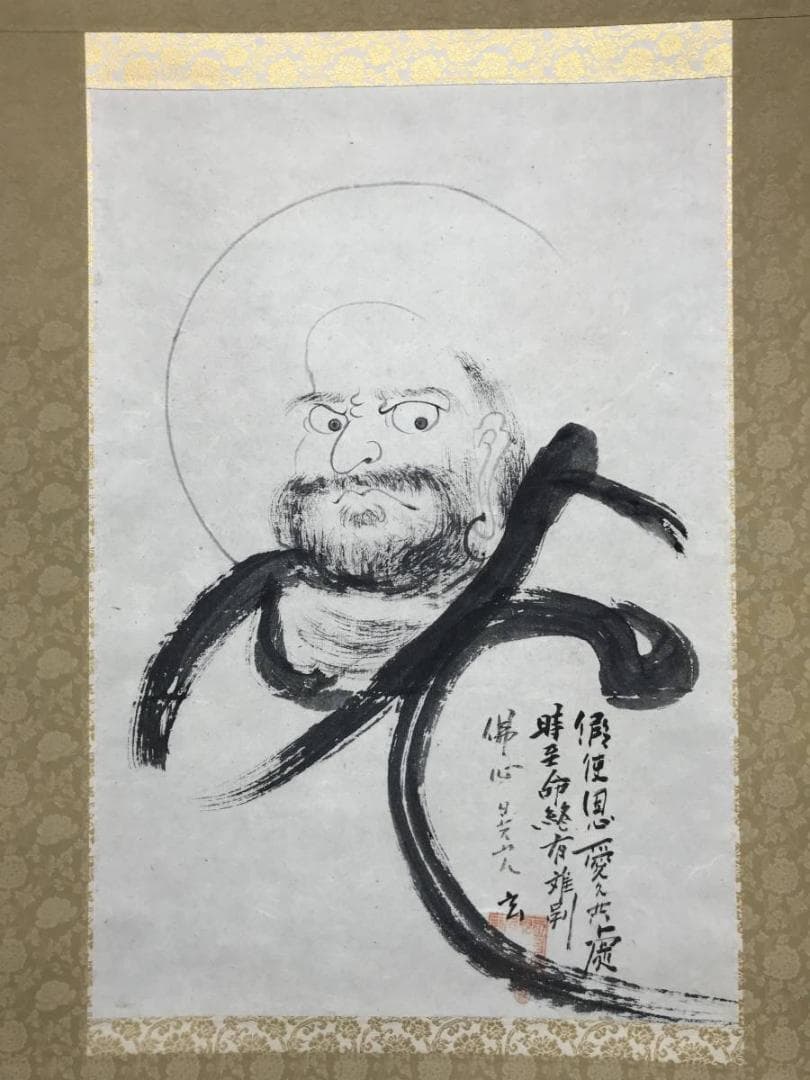 假使恩愛久共處
時至命終有離別
佛心 玄